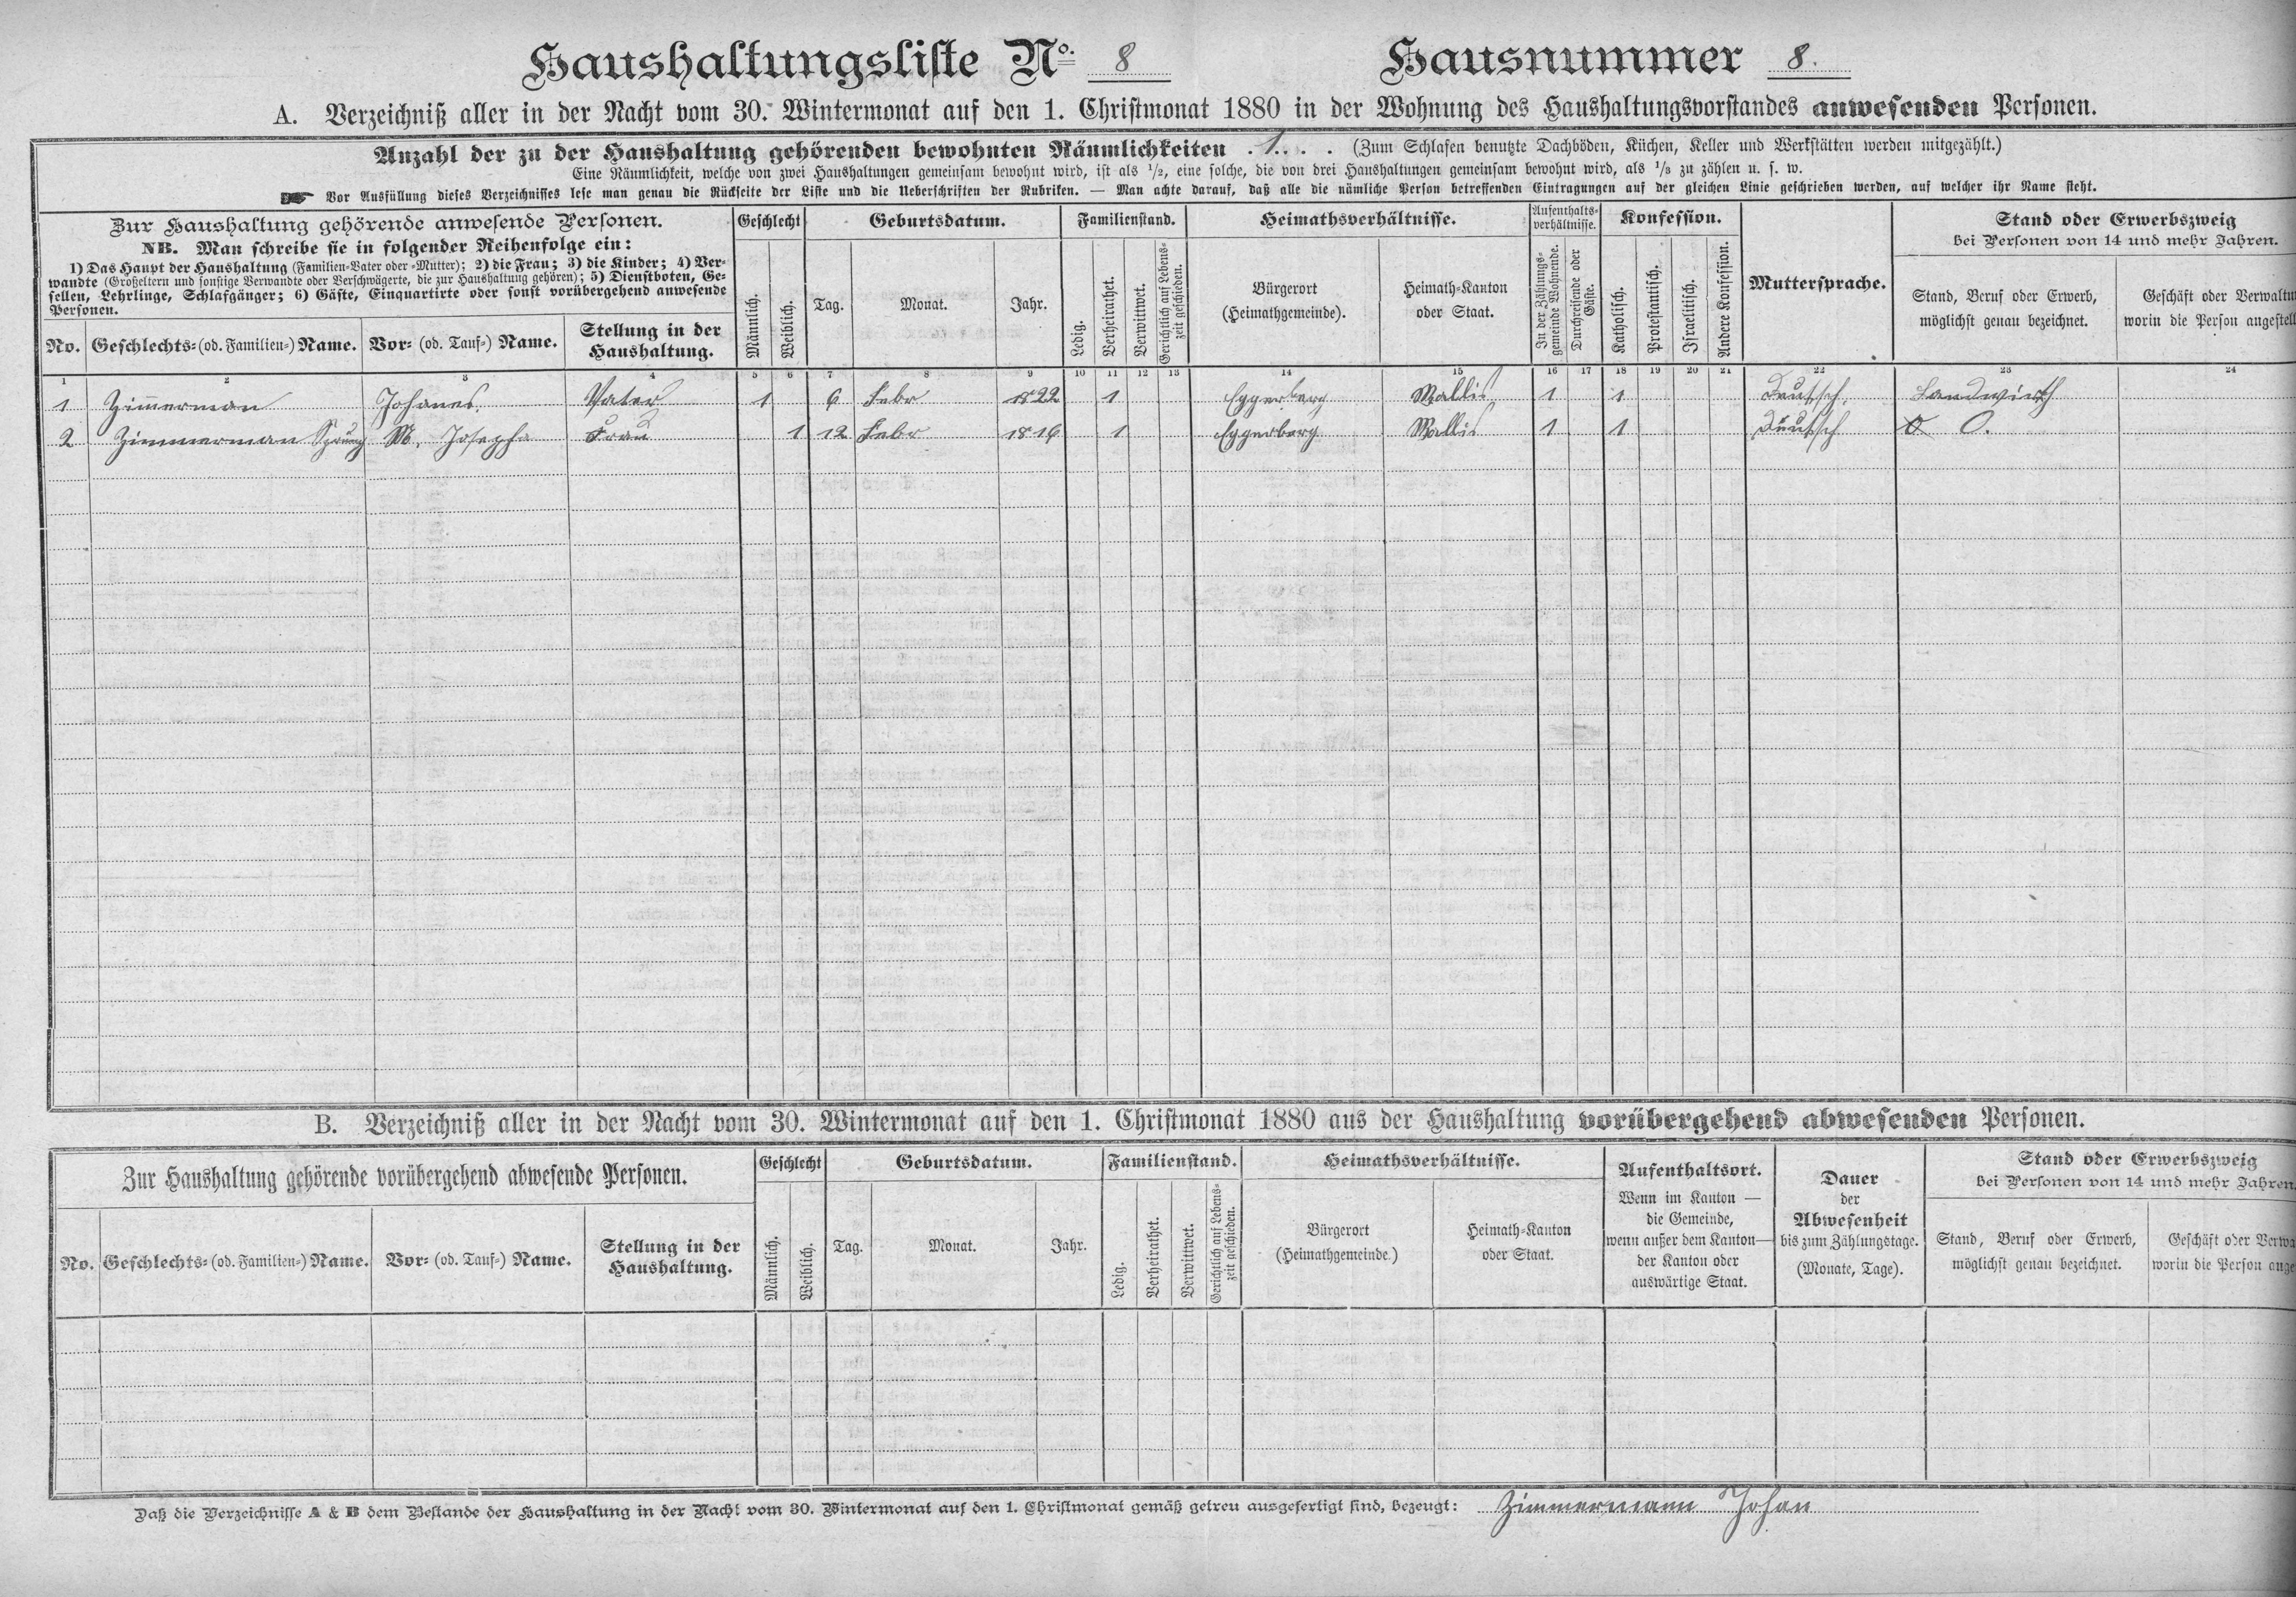 Haushaltungsliste No. 8 Hausnummer 8.
A. Verzeichniß aller in der Nacht vom 30. Wintermonat auf den 1. Christmonat 1880 in der Wohnung des Haushaltungsvorstandes anwesenden Personen.
Anzahl der zu der Haushaltung gehörenden bewohnten Räumlichkeiten . 1. . . (Zum Schlafen benutzte Dachböden, Küchen, Keller und Werkstätten werden mitgezählt.)
Eine Räumlichkeit, welche von zwei Haushaltungen gemeinsam bewohnt wird, ist als 1/2, eine solche, die von drei Haushaltungen gemeinsam bewohnt wird, als 1/3 zu zählen u. s. w.
☛ Vor Ausfüllung dieses Verzeichnisses lese man genau die Rückseite der Liste und die Ueberschriften der Rubriken. — Man achte darauf, daß alle die nämliche Person betreffenden Eintragungen auf der gleichen Linie geschrieben werden, auf welcher ihr Name steht.
Zur Haushaltung gehörende anwesende Personen.
NB. Man schreibe sie in folgender Reihenfolge ein:
1) Das Haupt der Haushaltung (Familien-Vater oder -Mutter); 2) die Frau; 3) die Kinder; 4) Ver-
wandte (Großeltern und sonstige Verwandte oder Verschwägerte, die zur Haushaltung gehören); 5) Dienstboten, Ge-
sellen, Lehrlinge, Schlafgänger; 6) Gäste, Einquartirte oder sonst vorübergehend anwesende
Personen.
No. Geschlechts- (od. Familien-) Name. Vor- (od. Tauf-) Name. Stellung in der
Haushaltung.
Geschlecht
Männlich. Weiblich.
Geburtsdatum.
Tag. Monat. Jahr.
Familienstand.
Ledig. Verheirathet. Verwittwet. Gerichtlich auf Lebens-
zeit geschieden.
Heimathsverhältnisse.
Bürgerort
(Heimathgemeinde).
Heimath-Kanton
oder Staat.
Aufenthalts-
verhältnisse.
In der Zählungs-
gemeinde Wohnende.
Durchreisende oder
Gäste.
Konfession.
Katholisch. Protestantisch. Israelitisch. Andere Konfession.
Muttersprache.
Stand oder Erwerbszweig
bei Personen von 14 und mehr Jahren.
Stand, Beruf oder Erwerb,
möglichst genau bezeichnet.
Geschäft oder Verwaltu
worin die Person angestell
1 2 3 4 5 6 7 8 9 10 11 12 13 14 15 16 17 18 19 20 21 22 23 24
1 Zimerman Johanes. Vater 1 6 Febr 1822 1 Eggerberg Wallis 1 1 Deutsch. Landwirth
2 Zimmerman M. Josepha Frau 1 12 Febr 1816 1 Eggerberg Wallis 1 1 Deutsch O.
B. Verzeichniß aller in der Nacht vom 30. Wintermonat auf den 1. Christmonat 1880 aus der Haushaltung vorübergehend abwesenden Personen.
Zur Haushaltung gehörende vorübergehend abwesende Personen.
No. Geschlechts- (od. Familien-) Name. Vor- (od. Tauf-) Name. Stellung in der
Haushaltung.
Geschlecht
Männlich. Weiblich.
Geburtsdatum.
Tag. Monat. Jahr.
Familienstand.
Ledig. Verheirathet. Verwittwet. Gerichtlich auf Lebens-
zeit geschieden.
Heimathsverhältnisse.
Bürgerort
(Heimathgemeinde.)
Heimath-Kanton
oder Staat.
Aufenthaltsort.
Wenn im Kanton —
die Gemeinde,
wenn außer dem Kanton—
der Kanton oder
auswärtige Staat.
Dauer
der
Abwesenheit
bis zum Zählungstage.
(Monate, Tage).
Stand oder Erwerbszweig
bei Personen von 14 und mehr Jahren.
Stand, Beruf oder Erwerb,
möglichst genau bezeichnet.
Geschäft oder Verwa
worin die Person ange
Daß die Verzeichnisse A & B dem Bestande der Haushaltung in der Nacht vom 30. Wintermonat auf den 1. Christmonat gemäß getreu ausgefertigt sind, bezeugt: Zimmermann Johan